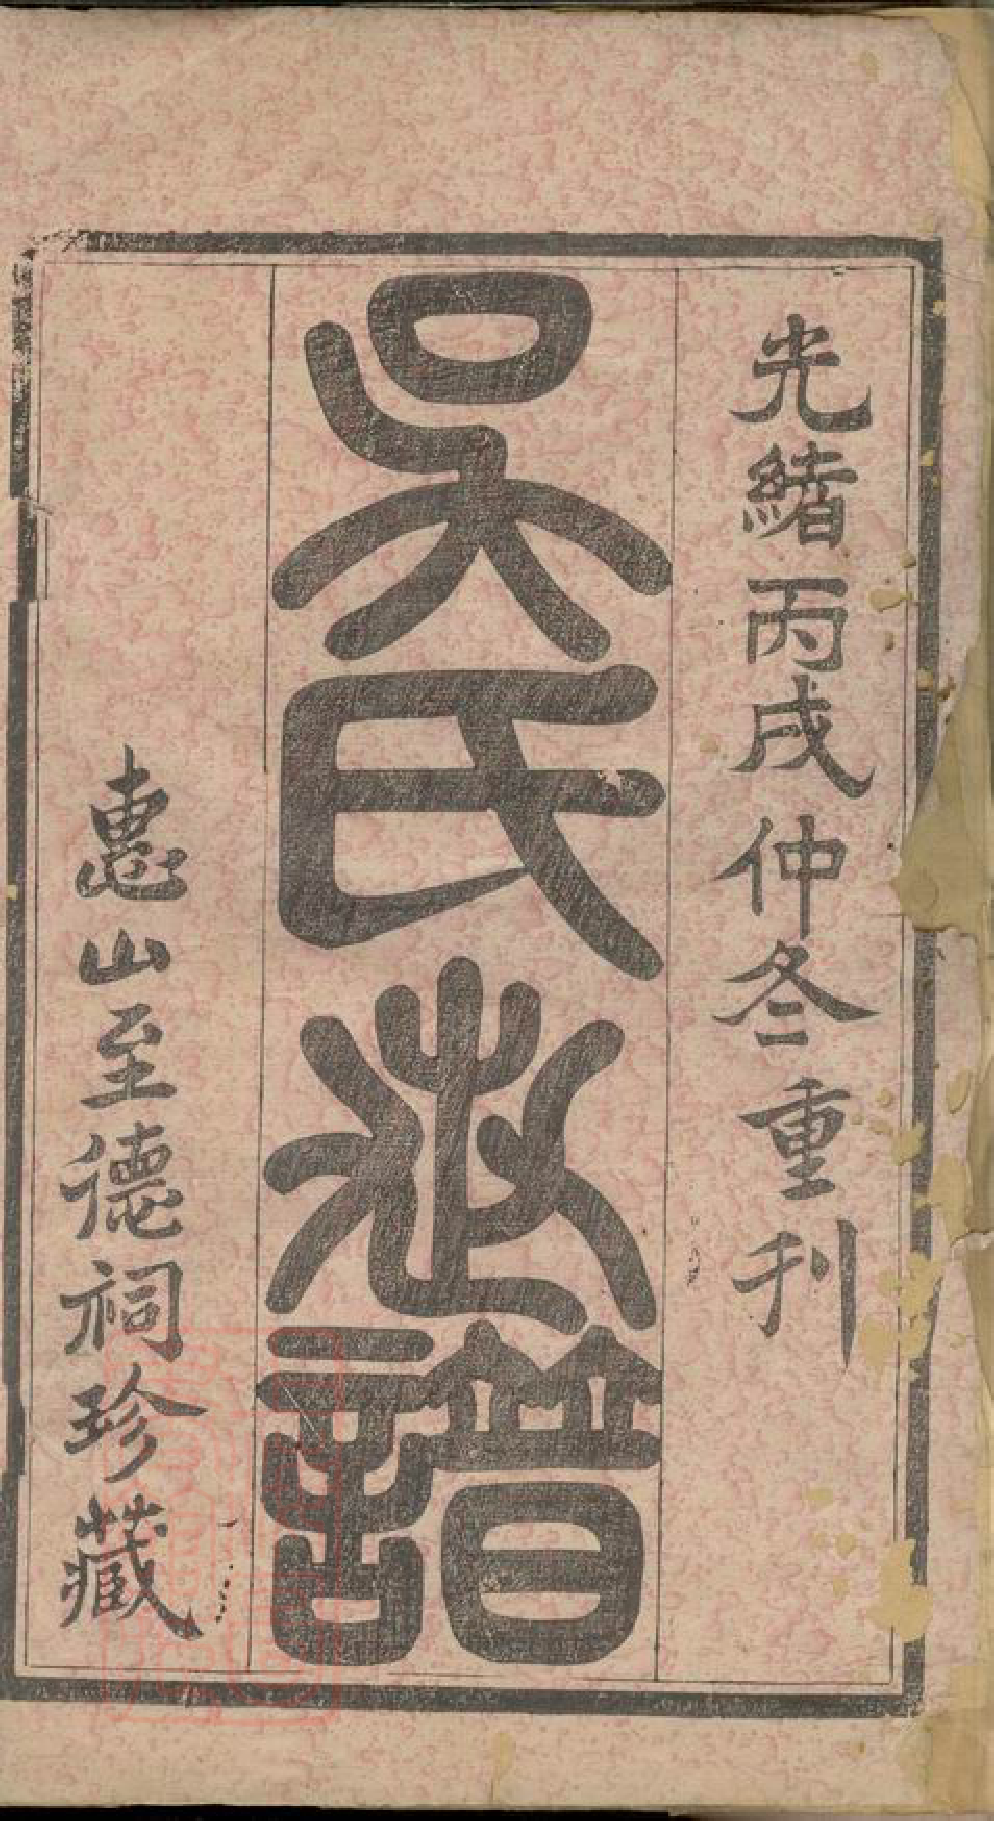 光緒丙戌仲冬重刊
吳氏譜
惠山至德祠珍藏